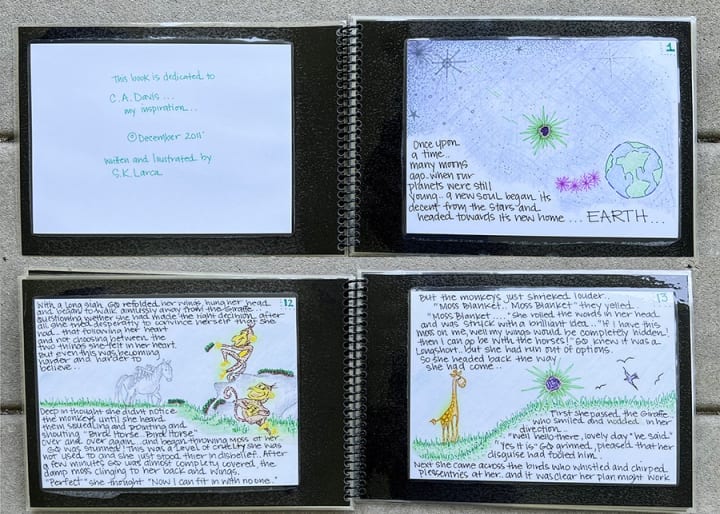 This book is dedicated to
C.A. Davis...
my inspiration...
©December 2011
written and Ilustrated by
S.K. Larca
1
Once upon
a time..
many moons
ago..when our
planets were still
young.. a new soul began its
decent from the stars and
headed towards it's new home ... EARTH...
12
With a long sigh, GQ refolded her wings, hung her head
and began to walk aimlessly away from the Giraffe...
questioning wether she had made the right decision, after
all she tried desperatly to convince herself that she
had.. that following her heart
and not choosing between the
two things she felt in her heart.
But even this was becoming
harder and harder to
believe...
Deep in thought she didn't notice
the monkeys until she heard
them squealing and pointing and
shouting "Bird Horse.. Bird Horse"
over and over again.. and began throwing moss at her.
GQ was stunned! This was a level of cruelty she was
not used to and she just stood thier in disbelief.. After
a few minutes GQ was almost completly covered, the
damp moss clinging to her back and wings.
"Perfect" she thought "Now I can fit in with no one.."
13
But the monkeys just shrieked louder..
"Moss Blanket.. Moss Blanket" they yelled.
"Moss Blanket....." she rolled the words in her head
and was struck with a brilliant idea... "If I have this
moss on me, well my wings would be completely hidden!
then I can go be with the horses!" GQ knew it was a
Longshort.. but she had run out of options.
So she headed back the way
she had come...
First she passed, the Giraffe
who smiled and nodded in her
direction..
"Well hello there, lovely day" he said.
"Yes it is" GQ grinned, pleased that her
disguise had fooled him..
Next she came across the birds who whistled and chirped
plesentries at her.. and it was clear her plan might work